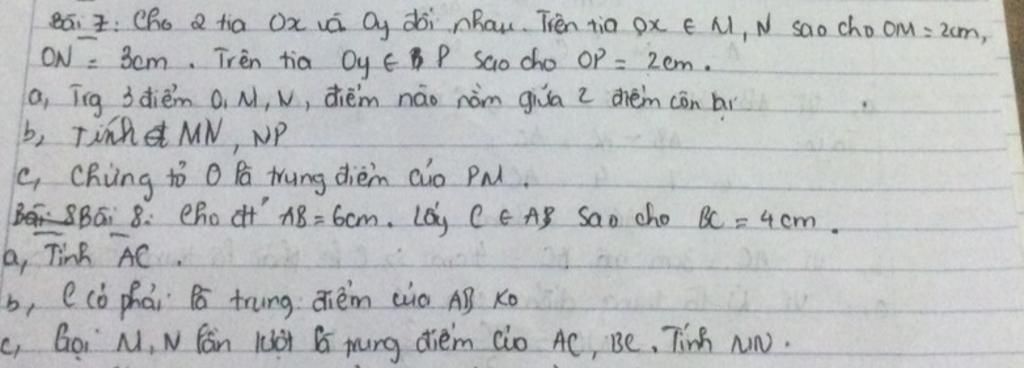 Bài 7: Cho 2 tia Ox và Oy đối nhau. Trên tia Ox ∈ M, N sao cho OM = 2cm,
ON = 3cm. Trên tia Oy ∈ P sao cho OP = 2cm.
a, Trg 3 điểm O, M, N, điểm nào nằm giữa 2 điểm còn lại
b, Tính MN, NP
c, Chứng tỏ O là trung điểm của PM.
Bài 8: Cho đt' AB = 6cm. Lấy C ∈ AB sao cho BC = 4cm.
a, Tính AC.
b, C có phải là trung điểm của AB ko
c, Gọi M, N lần lượt là trung điểm của AC, BC. Tính MN.